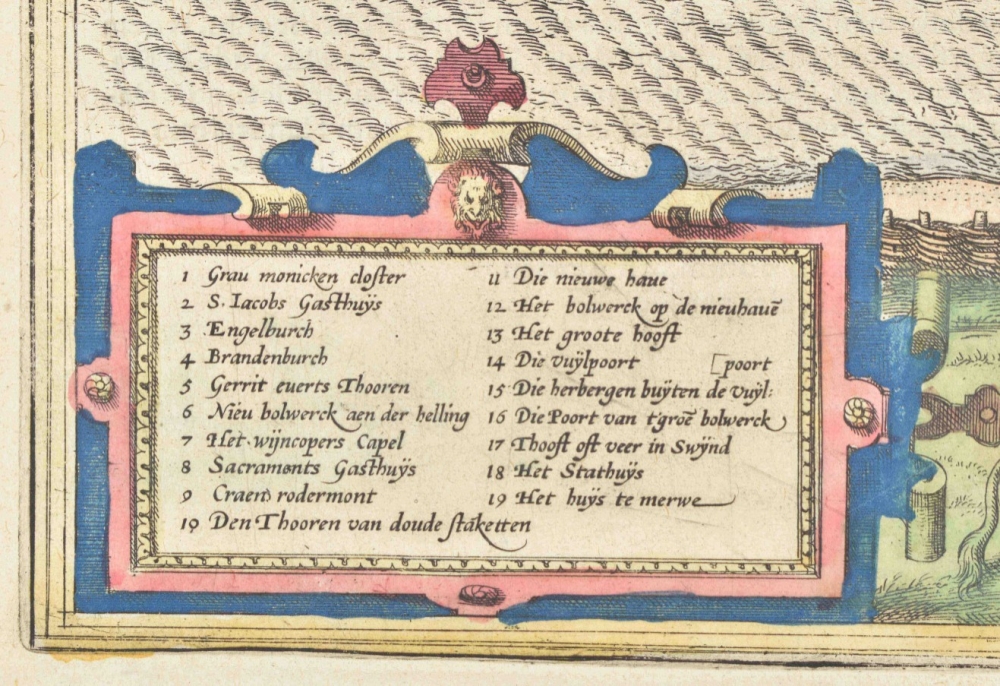 1 Grau monicken closter
2 S. Iacobs Gasthuÿs
3 Engelburch
4 Brandenburch
5 Gerrit euerts Thooren
6 Niēu bolwerck aen der helling
7 Het wijncopers Capel
8 Sacraments Gasthuÿs
9 Craen rodermont
10 Den Thooren van doude stāketten
11 Die nieuwe haue
12 Het bolwerck op de nieuhauē
13 Het groote hooft
14 Die vuÿlpoort [poort
15 Die herbergen buÿten de vuÿl:
16 Die Poort van t'groē bolwerck
17 Thooft oft veer in Swÿnd
18 Het Stathuÿs
19 Het huÿs te merwe